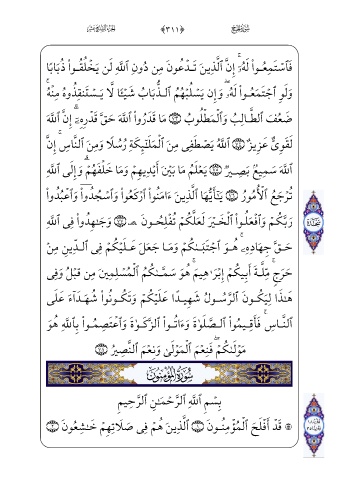 سُورَةُ الحَجّ ﴿٣١١﴾
فَٱسۡتَمِعُواْ لَهُۥٓۚ إِنَّ ٱلَّذِينَ تَدۡعُونَ مِن دُونِ ٱللَّهِ لَن يَخۡلُقُواْ ذُبَابٗا
وَلَوِ ٱجۡتَمَعُواْ لَهُۥۖ وَإِن يَسۡلُبۡهُمُ ٱلذُّبَابُ شَيۡـٔٗا لَّا يَسۡتَنقِذُوهُ مِنۡهُۚ
ضَعُفَ ٱلطَّالِبُ وَٱلۡمَطۡلُوبُ مَا قَدَرُواْ ٱللَّهَ حَقَّ قَدۡرِهِۦٓۚ إِنَّ ٱللَّهَ
لَقَوِيٌّ عَزِيزٌ ٱللَّهُ يَصۡطَفِى مِنَ ٱلۡمَلَـٰٓئِكَةِ رُسُلٗا وَمِنَ ٱلنَّاسِۚ إِنَّ
ٱللَّهَ سَمِيعُۢ بَصِيرٞ يَعۡلَمُ مَا بَيۡنَ أَيۡدِيهِمۡ وَمَا خَلۡفَهُمۡۚ وَإِلَى ٱللَّهِ
تُرۡجَعُ ٱلۡأُمُورُ يَـٰٓأَيُّهَا ٱلَّذِينَ ءَامَنُواْ ٱرۡكَعُواْ وَٱسۡجُدُواْ وَٱعۡبُدُواْ
رَبَّكُمۡ وَٱفۡعَلُواْ ٱلۡخَيۡرَ لَعَلَّكُمۡ تُفۡلِحُونَ وَجَـٰهِدُواْ فِى ٱللَّهِ
حَقَّ جِهَادِهِۦۚ هُوَ ٱجۡتَبَىٰكُمۡ وَمَا جَعَلَ عَلَيۡكُمۡ فِى ٱلدِّينِ مِنۡ
حَرَجٖۚ مِّلَّةَ أَبِيكُمۡ إِبۡرَٰهِيمَۚ هُوَ سَمَّىٰكُمُ ٱلۡمُسۡلِمِينَ مِن قَبۡلُ وَفِى
هَـٰذَا لِيَكُونَ ٱلرَّسُولُ شَهِيدًا عَلَيۡكُمۡ وَتَكُونُواْ شُهَدَآءَ عَلَى
ٱلنَّاسِۚ فَأَقِيمُواْ ٱلصَّلَوٰةَ وَءَاتُواْ ٱلزَّكَوٰةَ وَٱعۡتَصِمُواْ بِٱللَّهِ هُوَ
مَوۡلَىٰكُمۡۖ فَنِعۡمَ ٱلۡمَوۡلَىٰ وَنِعۡمَ ٱلنَّصِيرُ
سُورَةُ المُؤۡمِنُونَ
بِسۡمِ ٱللَّهِ ٱلرَّحۡمَـٰنِ ٱلرَّحِيمِ
۞ قَدۡ أَفۡلَحَ ٱلۡمُؤۡمِنُونَ ٱلَّذِينَ هُمۡ فِى صَلَاتِهِمۡ خَـٰشِعُونَ